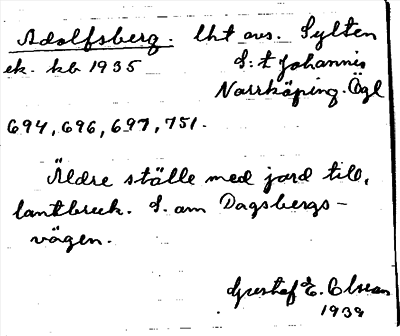 Adolfsberg. lht avs. Sylten
ek. kb 1935 S:t Johannis
Norrköping. Ögl
694, 696, 697, 751.
Äldre ställe med jord till,
lantbruk. S. om Dagsbergs-
vägen.
Gustaf E. Olsson
1939